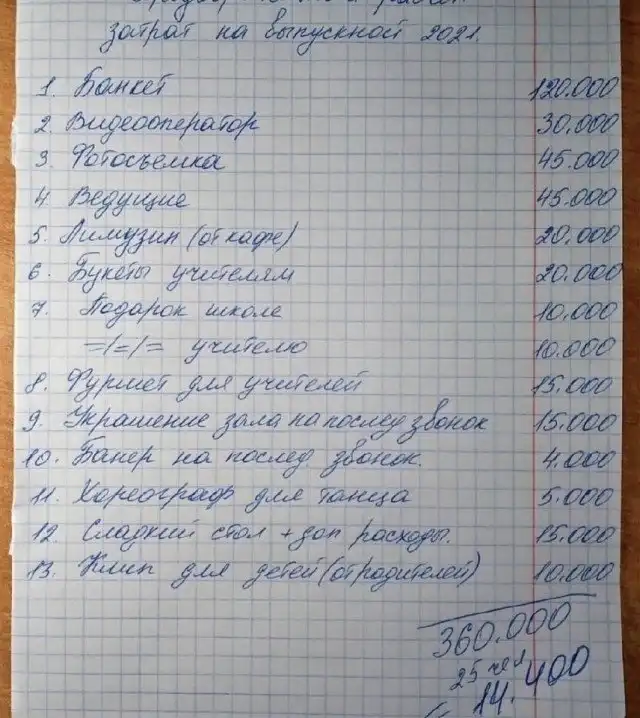 затрат на выпускной 2021.
1. Банкет 120.000
2. Видеооператор 30.000
3. Фотосъемка 45.000
4. Ведущие 45.000
5. Лимузин (от кафе) 20.000
6. Букеты учителям 20.000
7. Подарок школе 10.000
=/=/= учителю 10.000
8. Фуршет для учителей 15.000
9. Украшение зала на послед звонок 15.000
10. Банер на послед. звонок. 4.000
11. Хореограф для танца 5.000
12. Сладкий стол + доп расходы. 15.000
13. Клип для детей (от родителей) 10.000
360.000
25 чел
14.400